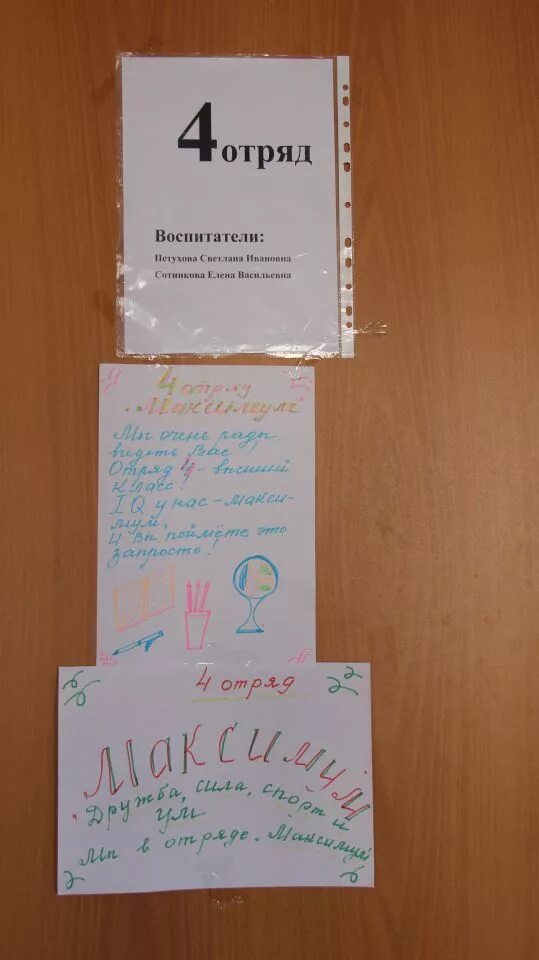 4 отряд
Воспитатели:
Петухова Светлана Ивановна
Сотникова Елена Васильевна
4 отряд
"Максимум"
Мы очень рады
видеть Вас!
Отряд 4 - высший
класс!
IQ у нас - макси-
мум,
И Вы поймёте это
запросто!
4 отряд
"Максимум"
Дружба, сила, спорт и
ум
Мы в отряде "Максимум"